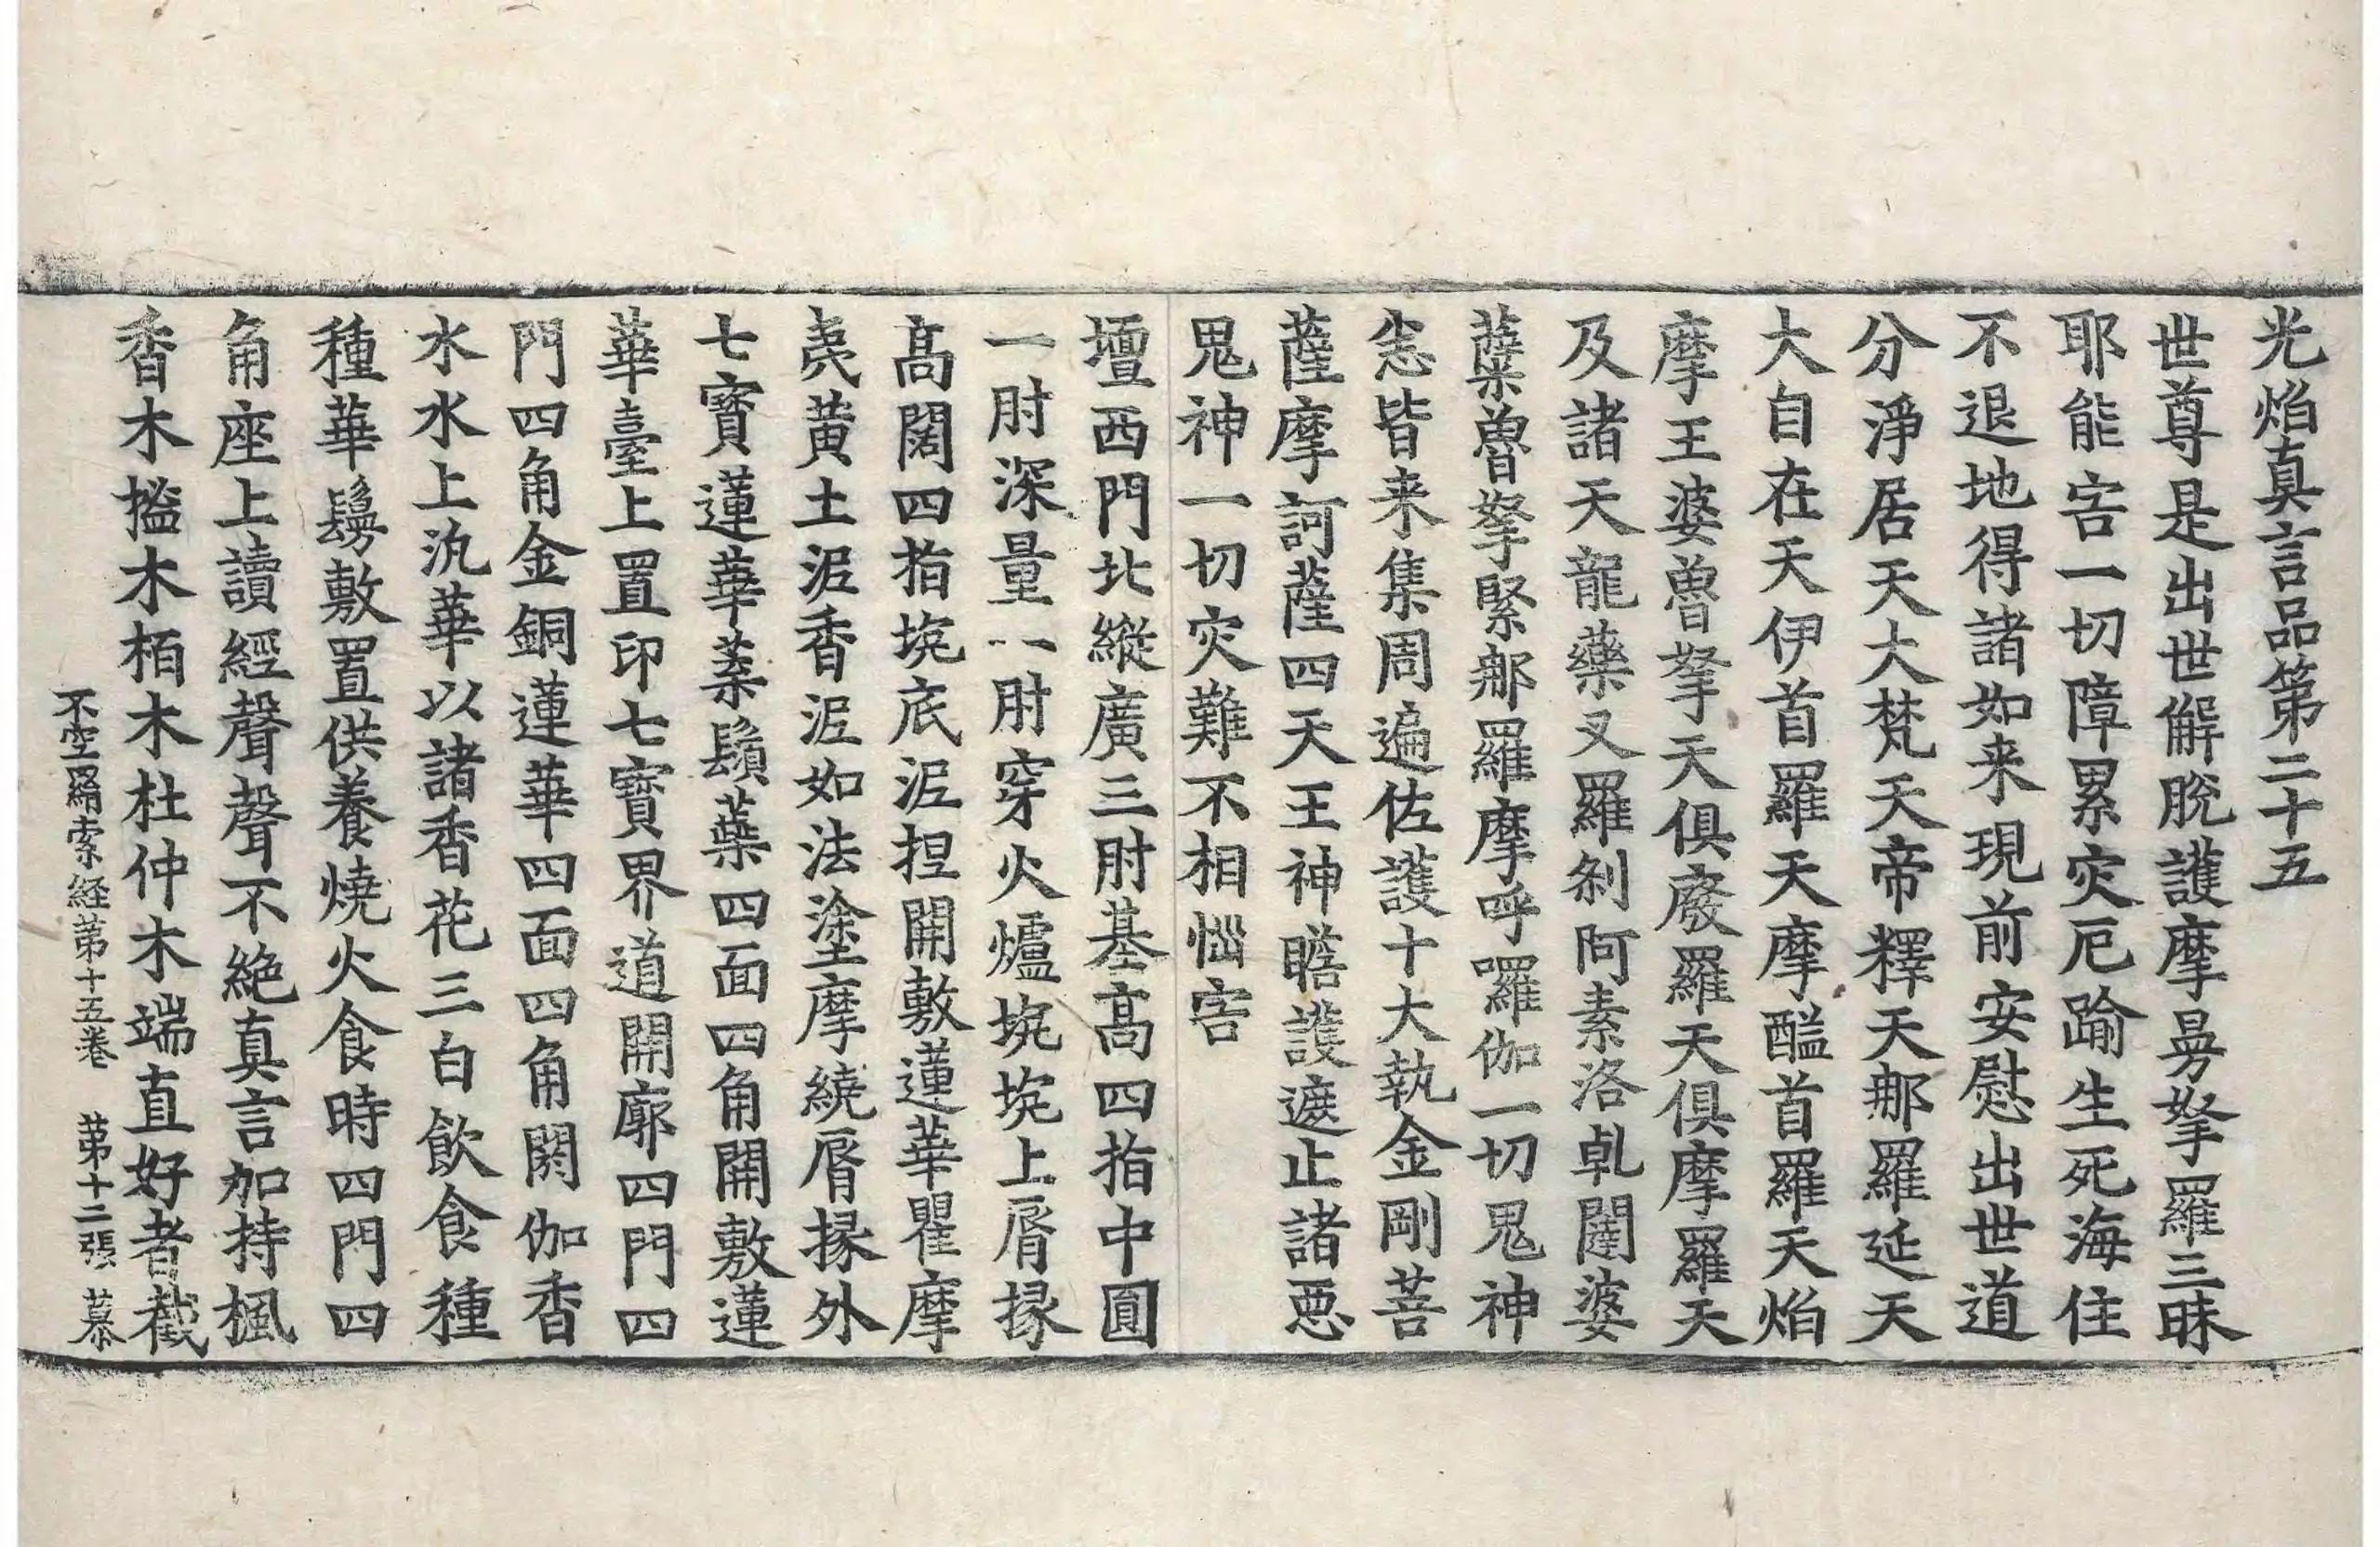 光焰真言品第二十五
世尊是出世解脫護摩曼拏羅三昧
耶能害一切障累灾厄踰生死海住
不退地得諸如来現前安慰出世道
分淨居天大梵天帝釋天那羅延天
大自在天伊首羅天摩醯首羅天焰
摩王婆嚕拏天俱廢羅天俱摩羅天
及諸天龍藥叉羅剎阿素洛乹闥婆
蘖嚕拏緊那羅摩呼囉伽一切鬼神
悉皆来集周遍佐護十大執金剛菩
薩摩訶薩四天王神瞻護遮止諸惡
鬼神一切灾難不相惱害
壇西門北縱廣三肘基高四指中圓
一肘深量一肘穿火爐埦埦上脣掾
高闊四指埦底泥捏開敷蓮華瞿摩
夷黃土泥香泥如法塗摩繞脣掾外
七寶蓮華葉鬚蘂四面四角開敷蓮
華臺上置印七寶界道開廓四門四
門四角金銅蓮華四面四角閼伽香
水水上汎華以諸香花三白飲食種
種華鬘敷置供養燒火食時四門四
角座上讀經聲聲不絕真言加持楓
香木搤木栢木杜仲木端直好者截
不空羂索経第十五卷　第十二張　慕